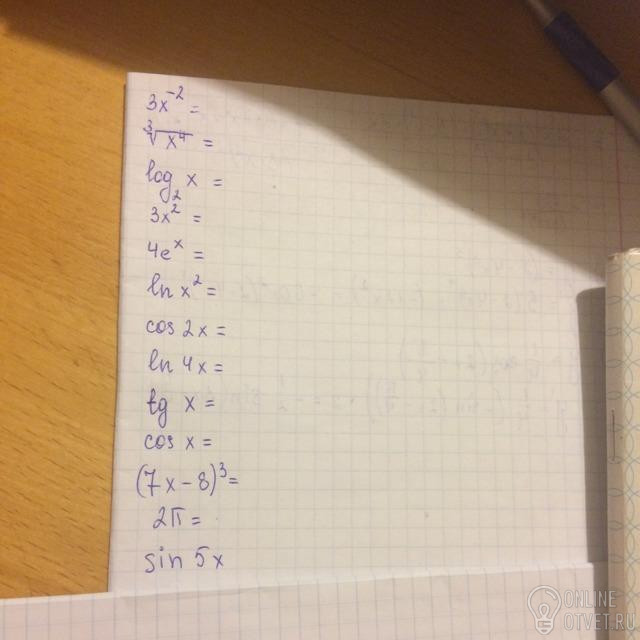 3x⁻² =
∛x⁴ =
log₂ x =
3x² =
4eˣ =
ln x² =
cos 2x =
ln 4x =
tg x =
cos x =
(7x-8)³=
2π =
sin 5x
ONLINE
OTVET.RU